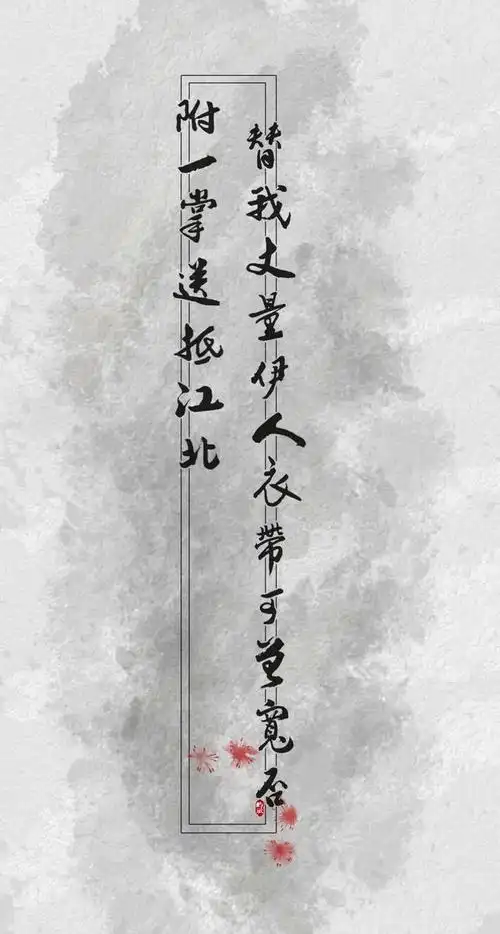 附一掌送抵江北
替我丈量伊人衣帶可曾寬否